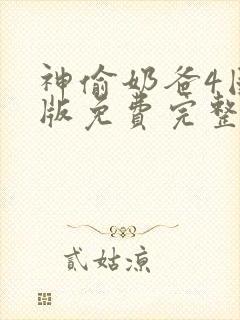 神偷奶爸4国
版免费完整
貳姑凉